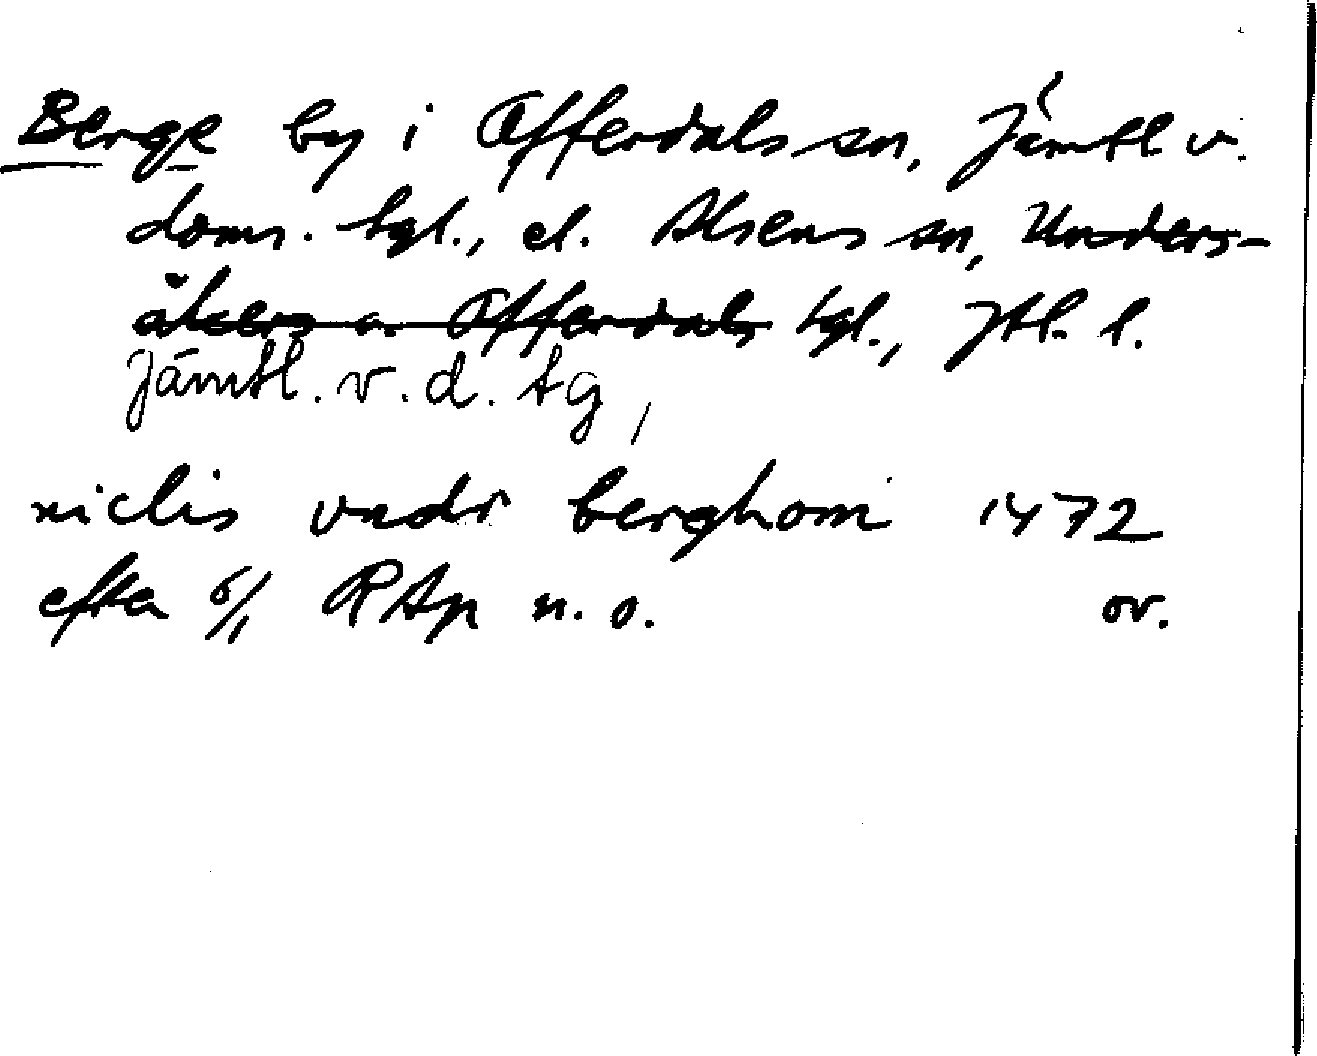 Berge by i Offerdals sn, Jämtl. v.
doms. tgl., el. Alsens sn, Unders-
åkers o. Offerdals tgl., Jtl. l.
Jämtl. v. d. tg,
niclis vndr berghom 1472
efter 6/1 RAp n. o. or.